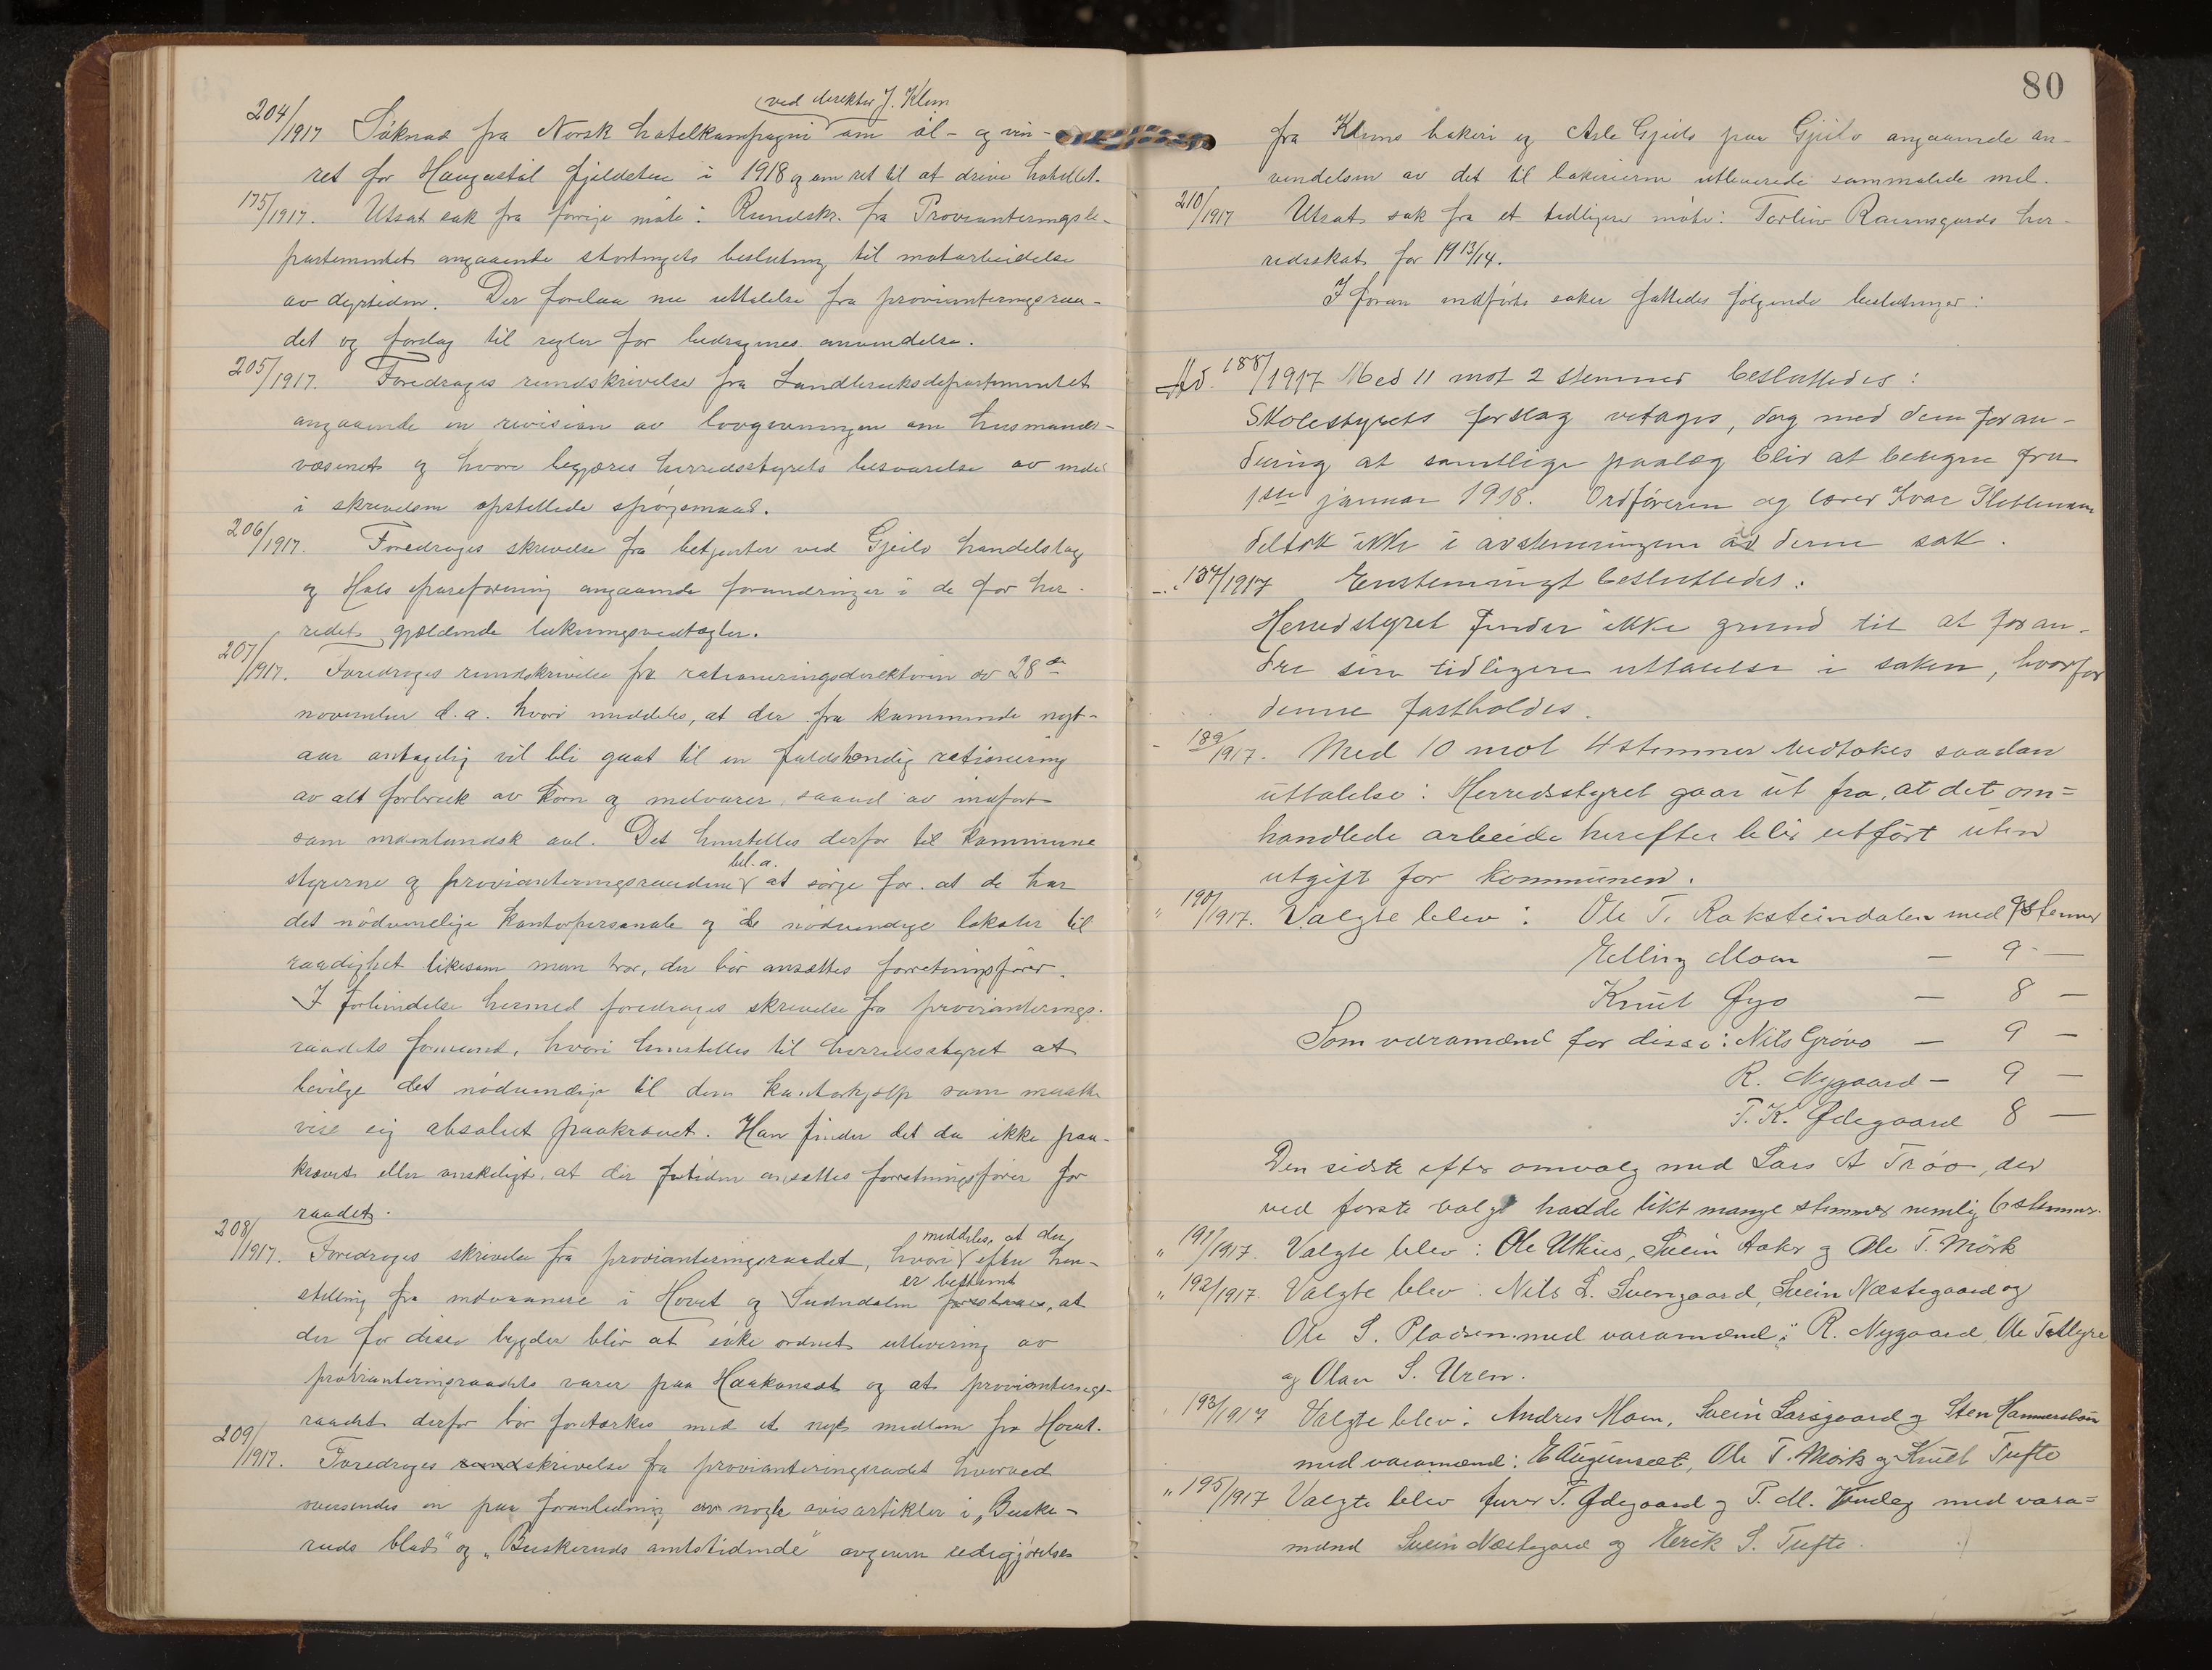 (ved direktør J. Klem
204/1917 Søknad fra Norsk hotelkompagni om øl- og vin-
ret for Haugastøl fjeldstue i 1918 og om ret til at drive hotellet.
175/1917. Utsat sak fra forrige møte: Rundskr. fra Provianteringsde-
partementet angaaende stortingets beslutning til motarbeidelse
av dyrtiden. Der forelaa nu uttalelse fra provianteringsraa-
det og forslag til regler for bedragenes anvendelse.
205/1917. Foredroges rundskrivelse fra Landbruksdepartementet
angaaende en revision av lovgivningen om husmands-
væsenet og hvori begjæres herredsstyrets besvarelse av endel
i skrivelsen opstillede spørsmaal.
206/1917. Foredroges skrivelse fra betjenter ved Geilo handelslag
og Hols spareforening angaaende forandringer i de for her-
redet gjældende lukningsvedtægter.
207/1917. Foredroges rundskrivelse fra rationeringsdirektøren av 28de
november d.a. hvori meddeles, at der fra kommende nyt-
aar antagelig vil bli gaat til en fuldstændig rationering
av alt forbruk av korn og melvarer, saavel av indført
som indenlandsk avl. Det henstilles derfor til kommune
styrerne og provianteringsraadene bl.a. at sørge for at de har
det nødvendige kontorpersonale og de nødvendige lokaler til
raadighet likesom man tror, der bør ansættes forretningsfører.
I forbindelse hermed foredroges skrivelse fra provianterings-
raadets formand, hvori henstilles til herredsstyret at
bevilge det nødvendige til den kontorhjælp som maatte
vise sig absolut paakrævet. Han finder det da ikke paa-
krævet eller ønskeligt, at der for tiden ansættes forretningsfører for
raadet.
208/1917. Foredroges skrivelse fra provianteringsraadet, hvori meddeles, at der efter hen-
stilling fra indvaanere i Hovet og Sudndalen er bestemt, at
der for disse bygder blir at søke ordnet utlevering av
provianteringsraadets varer paa Haakonset og at provianterings-
raadet derfor bør forstærkes med et nyt medlem fra Hovet.
209/1917. Foredroges skrivelse fra provianteringsraadet hvorved
oversendes en paa foranledning av nogle avisartikler i „Buske-
ruds blad" og „Buskeruds amtstidende" avgiven redegjørelse
80
fra Klems bakeri og Asle Gjeilo paa Gjeilo angaaende an-
vendelsen av det til bakerierne utleverede sammalede mel.
210/1917 Utsat sak fra et tidligere møte: Torleiv Raunsgards her-
redsskat for 1913/14.
I foran indførte saker fattedes følgende beslutninger:
Ad. 188/1917 Med 11 mot 2 stemmer besluttedes:
Skolestyrets forslag vetages, dog med den foran-
dring at samtlige paalæg blir at beregne fra
1ste januar 1918. Ordføreren og lærer Ivar Slettemoen
deltok ikke i avstemningen av denne sak.
-„- 187/1917 Enstemmigt besluttedes:
Herredstyret finder ikke grund til at foran-
dre sin tidligere uttalelse i saken, hvorfor
denne fastholdes.
- 189/1917. Med 10 mot 4 stemmer vedtokes saadan
uttalelse: Herredsstyret gaar ut fra, at det om=
handlede arbeide herefter blir utført uten
utgift for kommunen.
„ 190/1917. Valgte blev: Ole T. Raksteindalen med 9 stemmer
Elling Moen — 9 —
Knut Øyo — 8 —
Som varamænd for disse: Nils Grøvo — 9 —
R. Nygaard — 9 —
T. K. Ødegaard 8 —
Den sidste efter omvalg med Lars A Trøo, der
ved første valg hadde likt mange stemmer nemlig 6 stemmer.
„ 191/1917. Valgte blev: Ole Uthus, Svein Aaker og Ole T. Mørk
„ 192/1917. Valgte blev: Nils L. Svengaard, Svein Næstegaard og
Ole S. Pladsen med varamænd: R. Nygaard, Ole
og Olav S. Uren.
193/1917 Valgte blev: Andres Moen, Svein Larsgaard og Sten Hammersbøen
med varamænd: E Augunset, Ole T. Mørk og Knut Tufto
„ 195/1917 Valgte blev T. Ødegaard og T. M. med vara=
mænd Svein Næstegaard og Eirik S. Tufte.